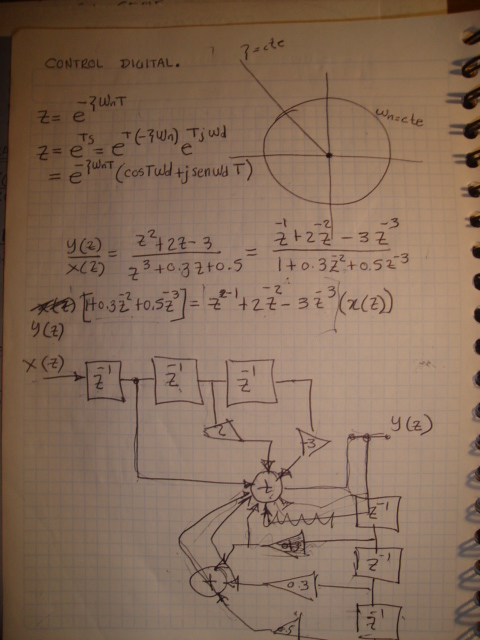 CONTROL DIGITAL.
ζ=cte
ωn=cte
z= e^{-ζωnT}
z= e^{Ts}= e^{T(-ζωn)} e^{Tjωd}
= e^{-ζωnT}(cosTωd+jsenωdT)
y(z)/x(z) = (z²+2z-3)/(z³+0.3z+0.5) = (z^{-1}+2z^{-2}-3z^{-3})/(1+0.3z^{-2}+0.5z^{-3})
[1+0.3z^{-2}+0.5z^{-3}]= z^{-1}+2z^{-2}-3z^{-3}(x(z))
y(z)
X(z)
z^{-1}
z^{-1}
z^{-1}
2
-3
y(z)
+
z^{-1}
z^{-1}
+
0.3
z^{-1}
0.5